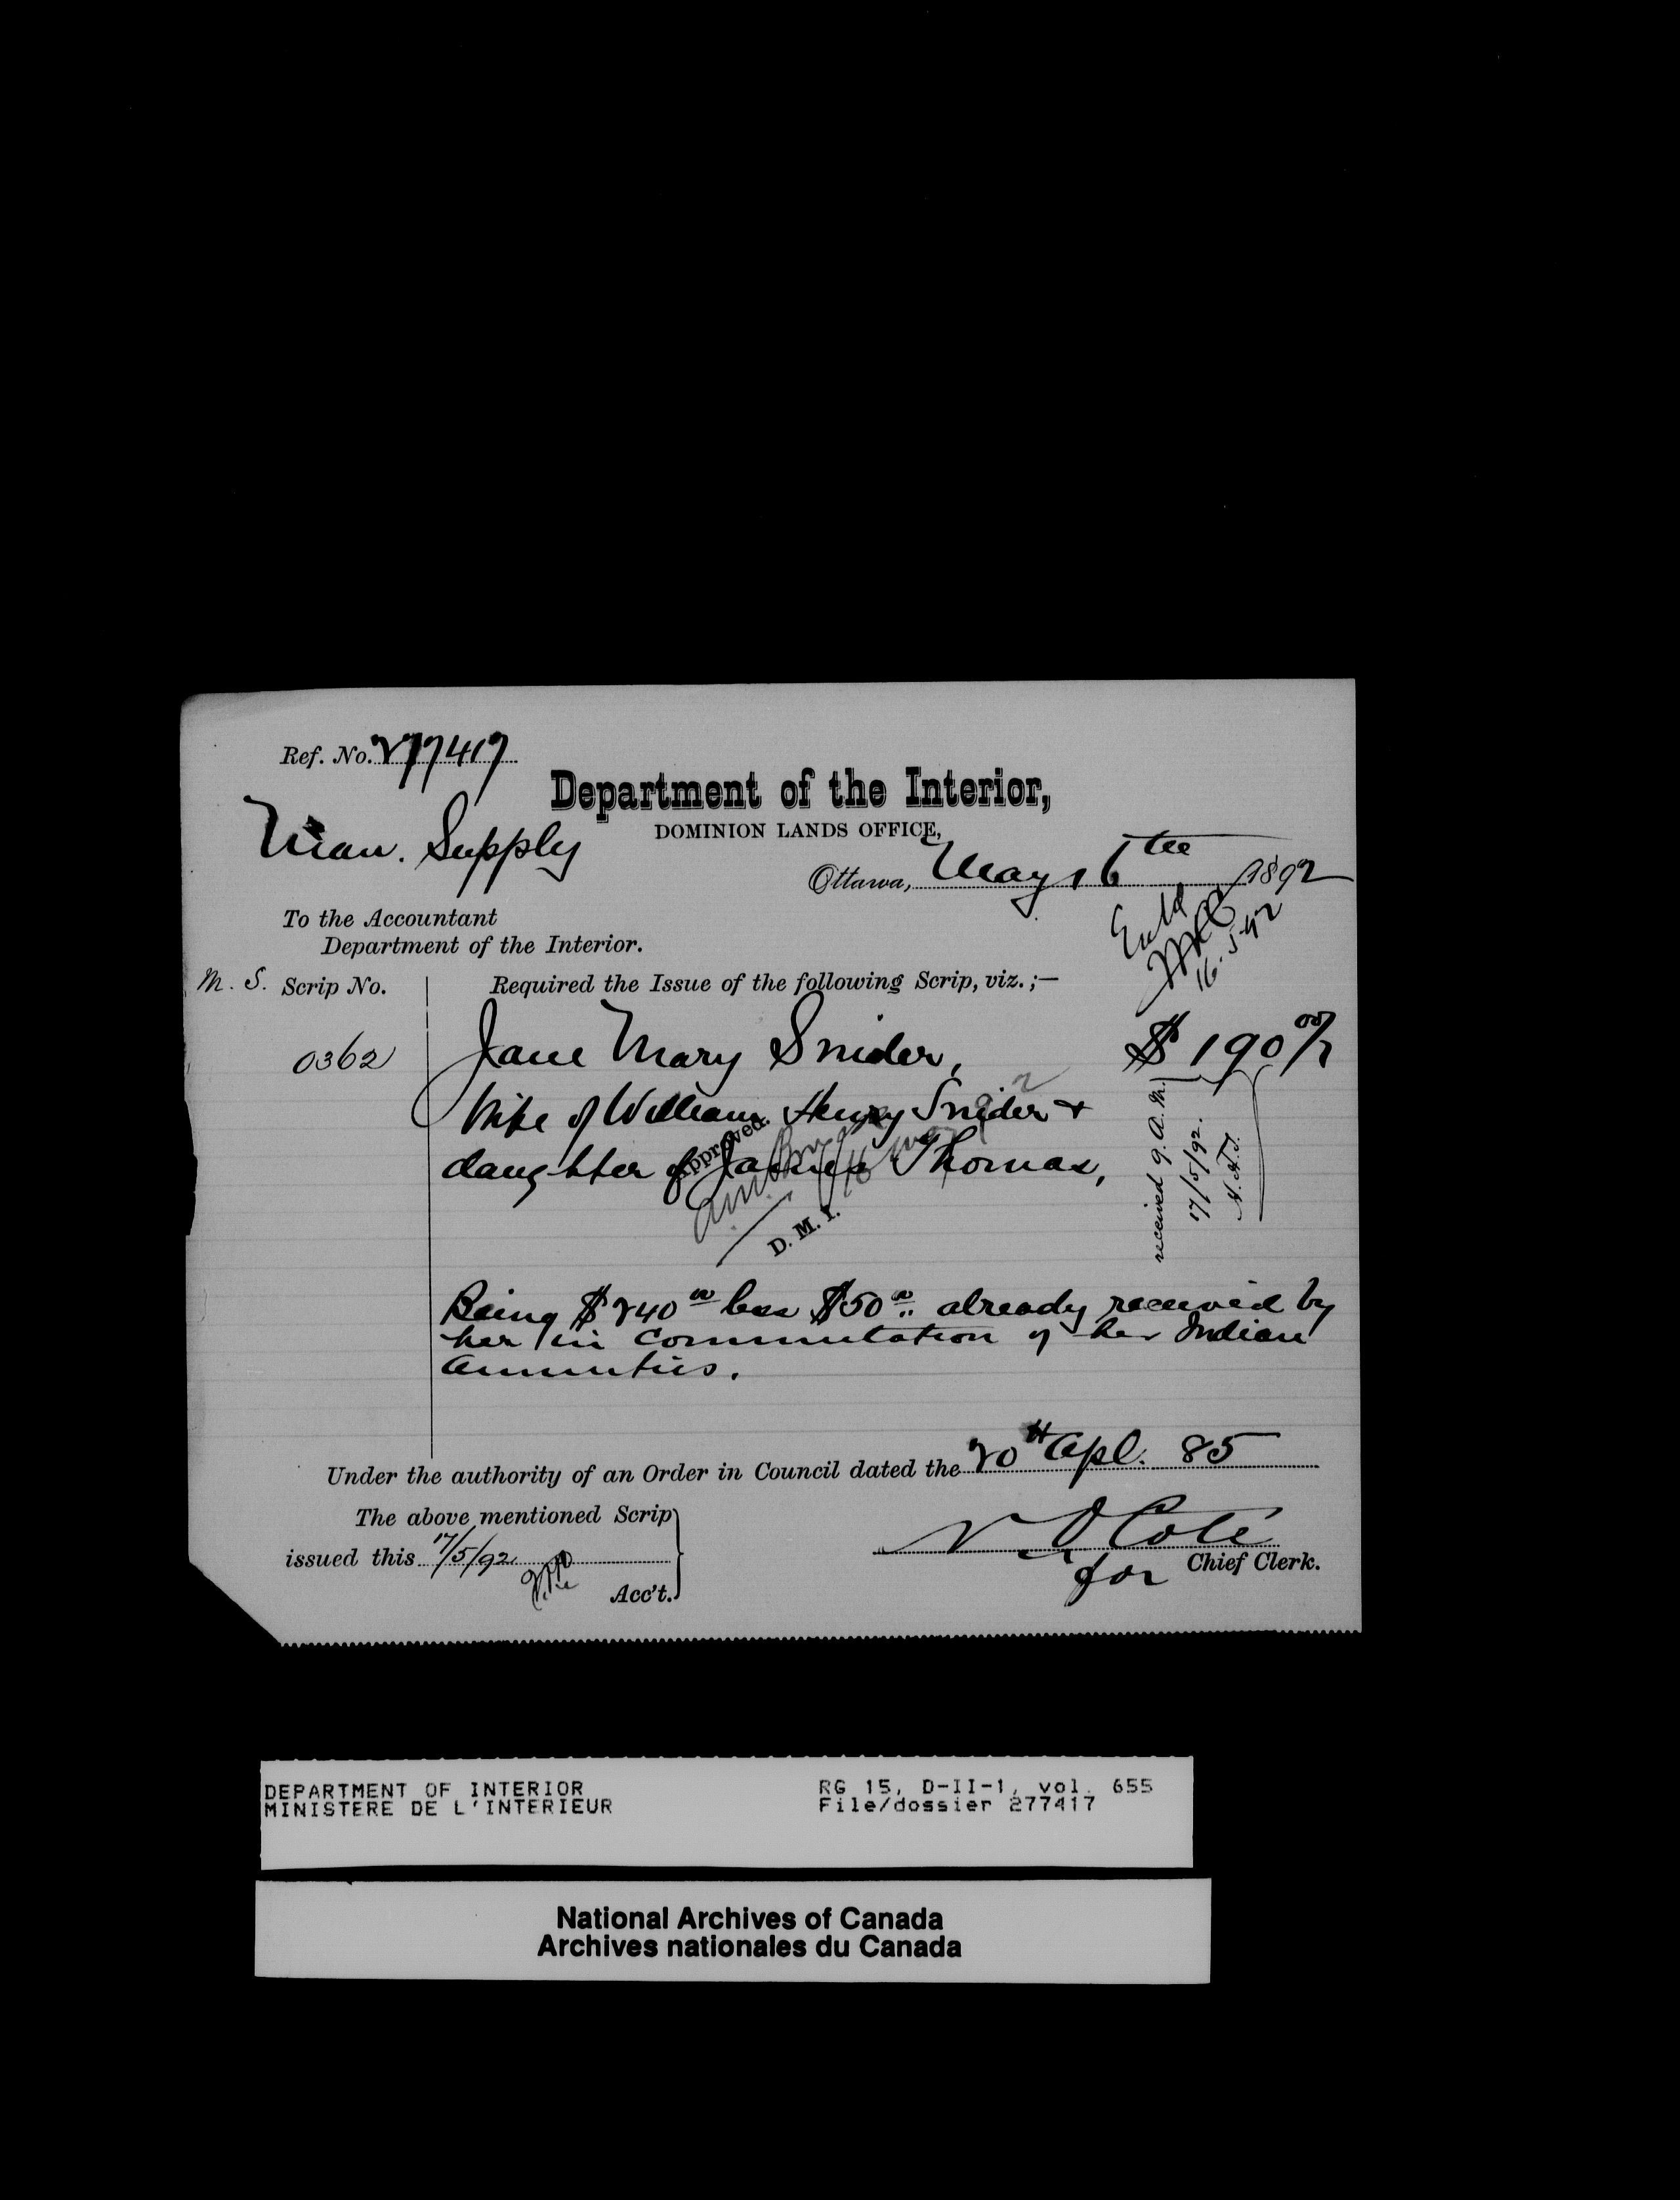 Ref. No. 277417
Man. Supply
Department of the Interior,
DOMINION LANDS OFFICE,
Ottawa, May 16th 1892
Entd
16.5.92
To the Accountant
Department of the Interior.
M. S. Scrip No.
Required the Issue of the following Scrip, viz.;—
0362
Jane Mary Snider, $190 00/
Wife of William Henry Snider &
daughter of James Thomas,
Approved.
D. M. I.
received g. A. M.
17/5/92.
Being $240 00 less $50 00 already received by
her in commutation of her Indian
annuities.
Under the authority of an Order in Council dated the 20th Apl. 85
The above mentioned Scrip
issued this 17/5/92
Acc't.
N O Coté
for Chief Clerk.
DEPARTMENT OF INTERIOR
MINISTERE DE L'INTERIEUR
RG 15, D-II-1, vol. 655
File/dossier 277417
National Archives of Canada
Archives nationales du Canada